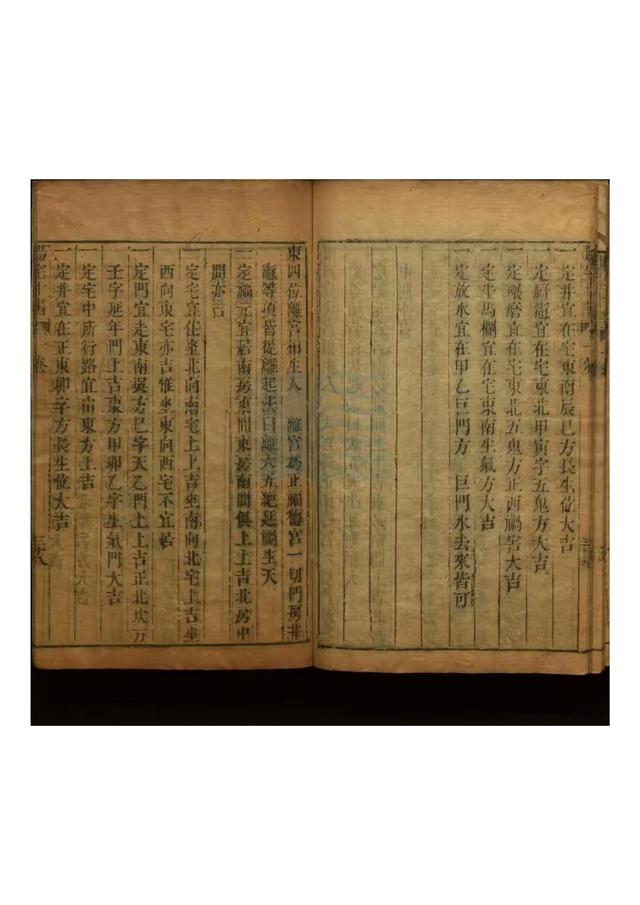 一定井宜在宅東南辰巳方長生位大吉
一定厨竈宜在宅東北甲寅字五鬼方大吉
一定碾磨宜在宅東北五鬼方正西禍害大吉
一定牛馬欄宜在宅東南生氣方大吉
一定放水宜在甲乙巨門方 巨門水去來皆可
東四位離宮相生人 離宮爲正福德宮一切門房井
竈等項皆從離起法曰離六五絶延禍生天
一定福元宜居南房東間東房南間俱上上吉北房中
間亦吉
一定宅宜住坐北向南宅上上吉坐南向北宅上吉坐
西向東宅亦吉惟坐東向西宅不宜居
一定門宜走東南巽方巳字天乙門上上吉正北坎方
壬字延年門上吉東方甲卯乙字生氣門大吉
一定宅中所行路宜南東方上吉
一定井宜在正東卯字方長生位大吉
陽宅十書 一卷 三十八